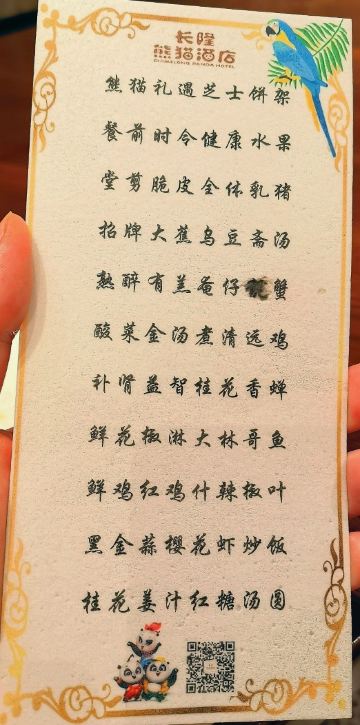 长隆
熊猫酒店
CHIMELONG PANDA HOTEL
熊猫礼遇芝士饼架
餐前时令健康水果
堂剪脆皮全体乳猪
招牌大蕉乌豆斋汤
熟醉有羔奄仔蟹
酸菜金汤煮清远鸡
补肾益智桂花香蝉
鲜花椒淋大林哥鱼
鲜鸡红鸡什辣椒叶
黑金蒜樱花虾炒饭
桂花姜汁红糖汤圆